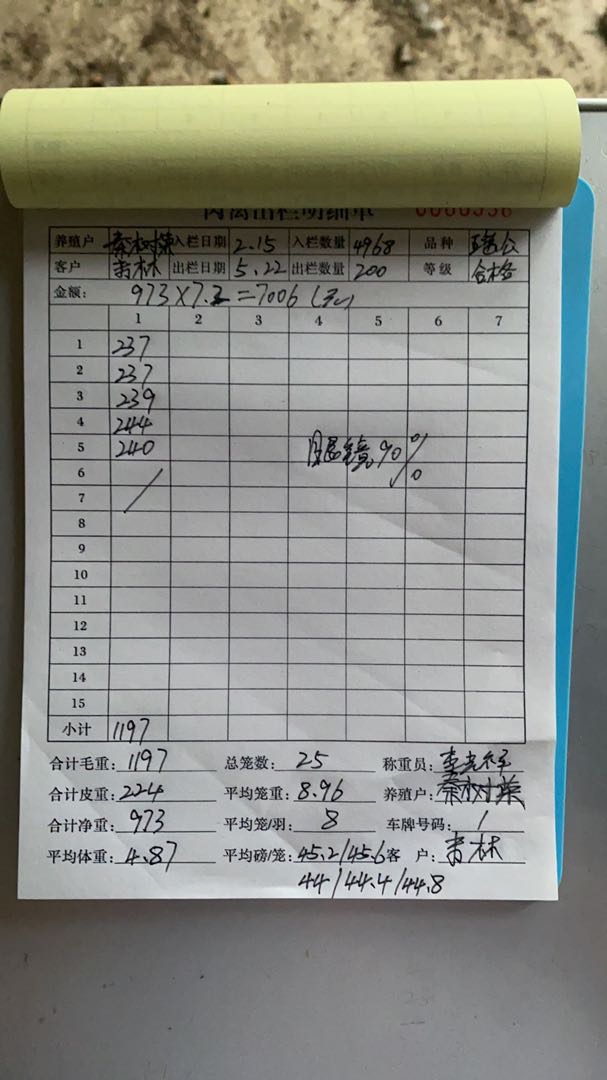 肉禽出栏明细单 0000556
养殖户 秦树荣 入栏日期 2.15 入栏数量 4968 品种 瑶公
客户 青林 出栏日期 5.22 出栏数量 200 等级 合格
金额: 973×7.2=7006(元)
1 2 3 4 5 6 7
1 237
2 237
3 239
4 244
5 240 眼镜90%
6
7
8
9
10
11
12
13
14
15
小计 1197
合计毛重: 1197 总笼数: 25 称重员:
合计皮重: 224 平均笼重: 8.96 养殖户: 秦树荣
合计净重: 973 平均笼/羽: 8 车牌号码: /
平均体重: 4.87 平均磅/笼: 45.2/45.6 客 户: 青林
44/44.4/44.8